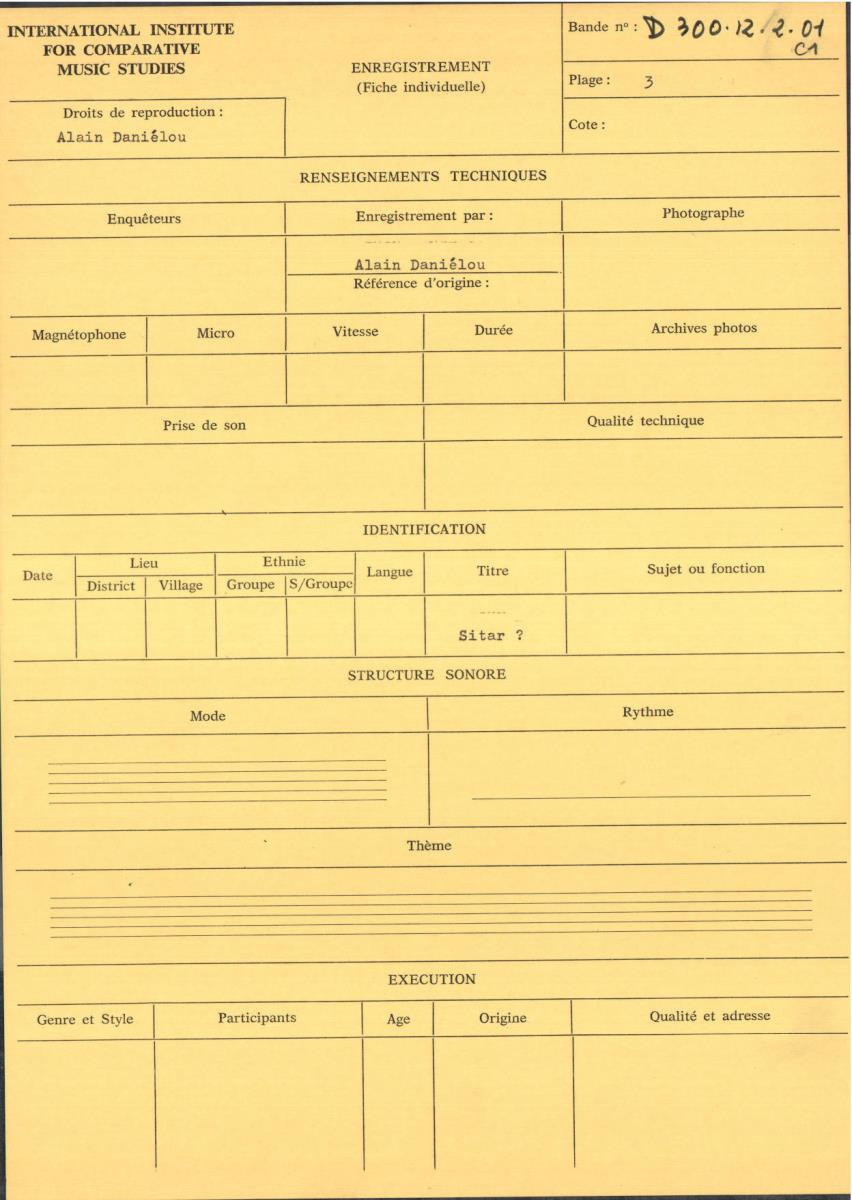 INTERNATIONAL INSTITUTE
FOR COMPARATIVE
MUSIC STUDIES
Droits de reproduction :
Alain Daniélou
ENREGISTREMENT
(Fiche individuelle)
Bande nº : D 300.12.2.01
C1
Plage : 3
Cote :
RENSEIGNEMENTS TECHNIQUES
Enquêteurs
Enregistrement par :
Photographe
Alain Daniélou
Référence d'origine :
Magnétophone
Micro
Vitesse
Durée
Archives photos
Prise de son
Qualité technique
IDENTIFICATION
Date
Lieu
District
Village
Ethnie
Groupe
S/Groupe
Langue
Titre
Sujet ou fonction
Sitar ?
STRUCTURE SONORE
Mode
Rythme
Thème
EXECUTION
Genre et Style
Participants
Age
Origine
Qualité et adresse